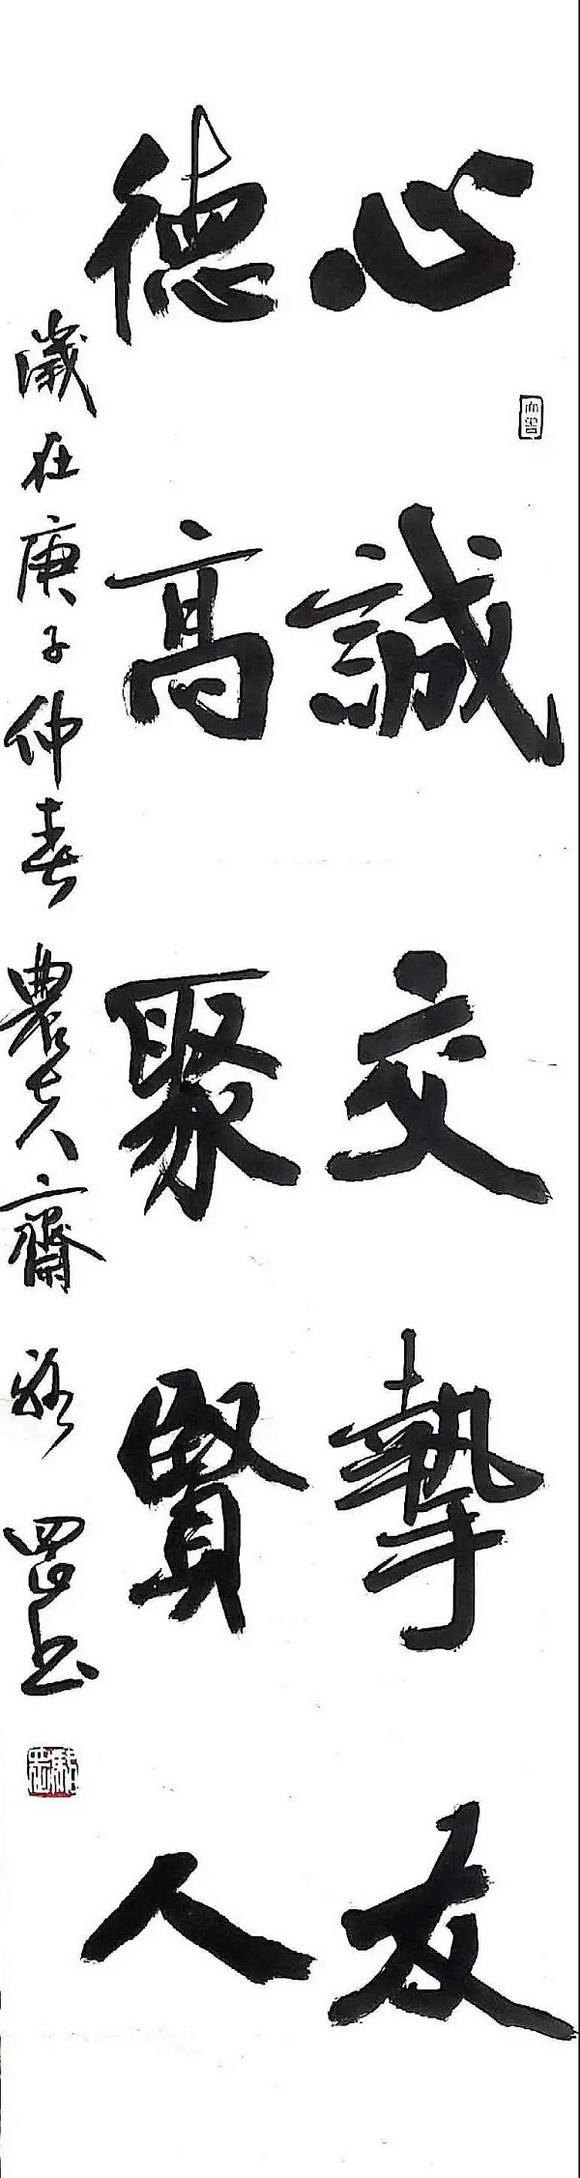 心誠交摯友
德高聚賢人
歲在庚子仲春農夫齋